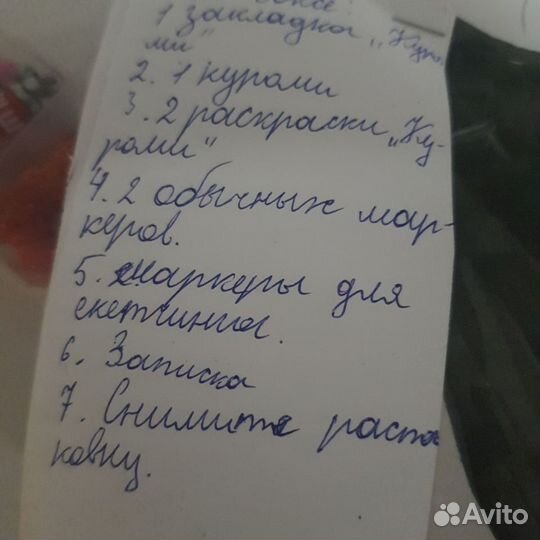 1 закладка „Куро
ми"
2. 1 куроми
3. 2 раскраски „Ку-
роми"
4. 2 обычных мар-
керов.
5. маркеры для
скетчинга.
6. Записка
7. Снимите распа
ковку.
Avito